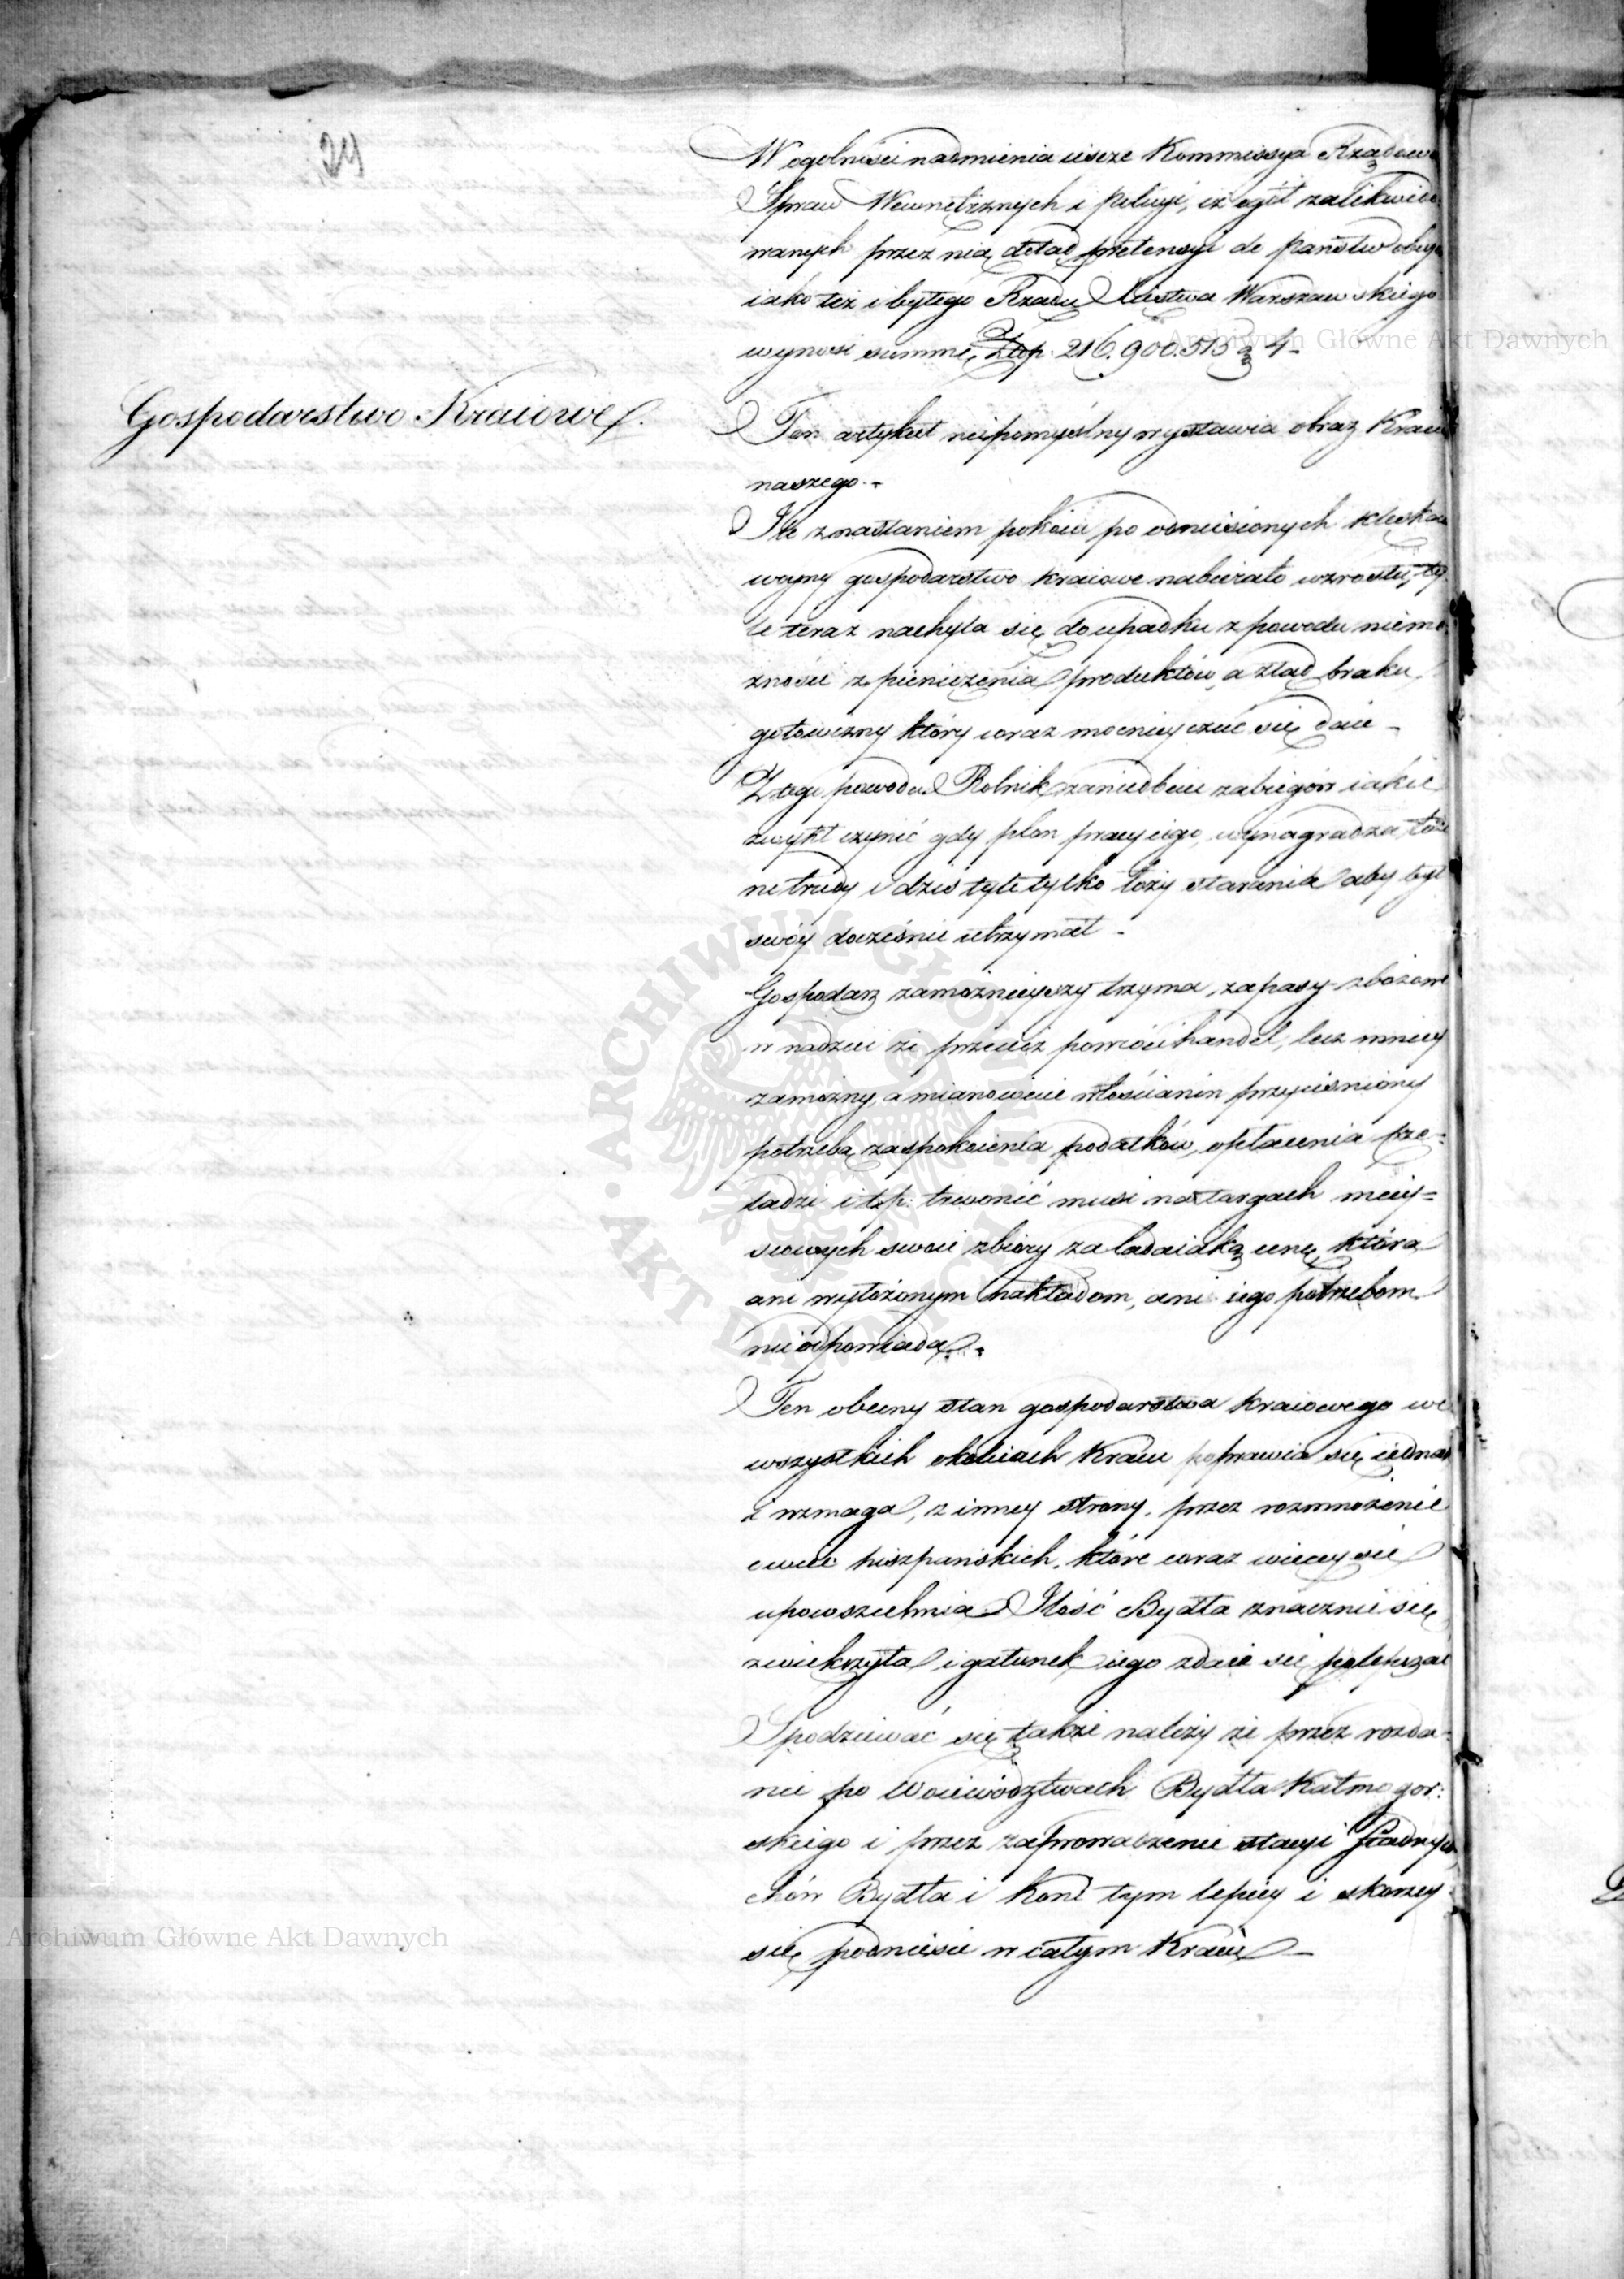 24
W ogolności nadmienia ieszcze Kommissya Rządowa
Spraw Wewnętrznych i Policyi, iż ogół zalikwido
wanych przez nią dotąd pretensyi do państw obcych
iako też i byłego Rządu Xięstwa Warszawskiego
wynosi summę Złop. 216.900.513 g 4 -
Gospodarstwo Kraiowe.
Ten artykuł niepomyślny wystawia obraz Kraiu
naszego. -
Ile z nastaniem pokoiu po odniesionych klęskach
woyny gospodarstwo kraiowe nabierało wzrostu, ty
le teraz nachyla się do upadku z powodu niemo
żności spieniężenia produktów, a ztąd braku
gotowizny który coraz mocniey czuć się daie -
Z tego powodu Rolnik zaniedbuie zabiegów iakie
zwykł czynić gdy plon pracy iego, wynagradza łożo
ne trudy i dziś tyle tylko łoży starania aby byt
swóy docześnie utrzymał -
Gospodarz zamożnieyszy trzyma zapasy zbożowe
w nadziei że przecież powróci handel, lecz mniey
zamożny, a mianowicie włościanin przyciśniony
potrzebą zaspokoienia podatków, opłacenia cze-
ladzi i t.p. trwonić musi na targach miey=
scowych swoie zbiory za ladaiaką cenę, która
ani wyłożonym nakładom, ani iego potrzebom
nie odpowiada. -
Ten obecny stan gospodarstwa kraiowego we
wszystkich okolicach Kraiu poprawia się iednak
i wzmaga, z inney strony, przez rozmnożenie
owiec hiszpańskich, które coraz więcey się
upowszechnia. Ilość Bydła znacznie się
zwiekszyła i gatunek iego zdaie się polepszać
Spodziewać się także należy że przez rozda-
nie po Woiewództwach Bydła Kałmogor:
skiego i przez zaprowadzenie stacyi stadnych
chów Bydła i Koni tym lepiey i skorzey
się podniesie w całym Kraiu -
Archiwum Główne Akt Dawnych
Archiwum Główne Akt Dawnych
ARCHIWUM GŁÓWNE AKT DAWNYCH